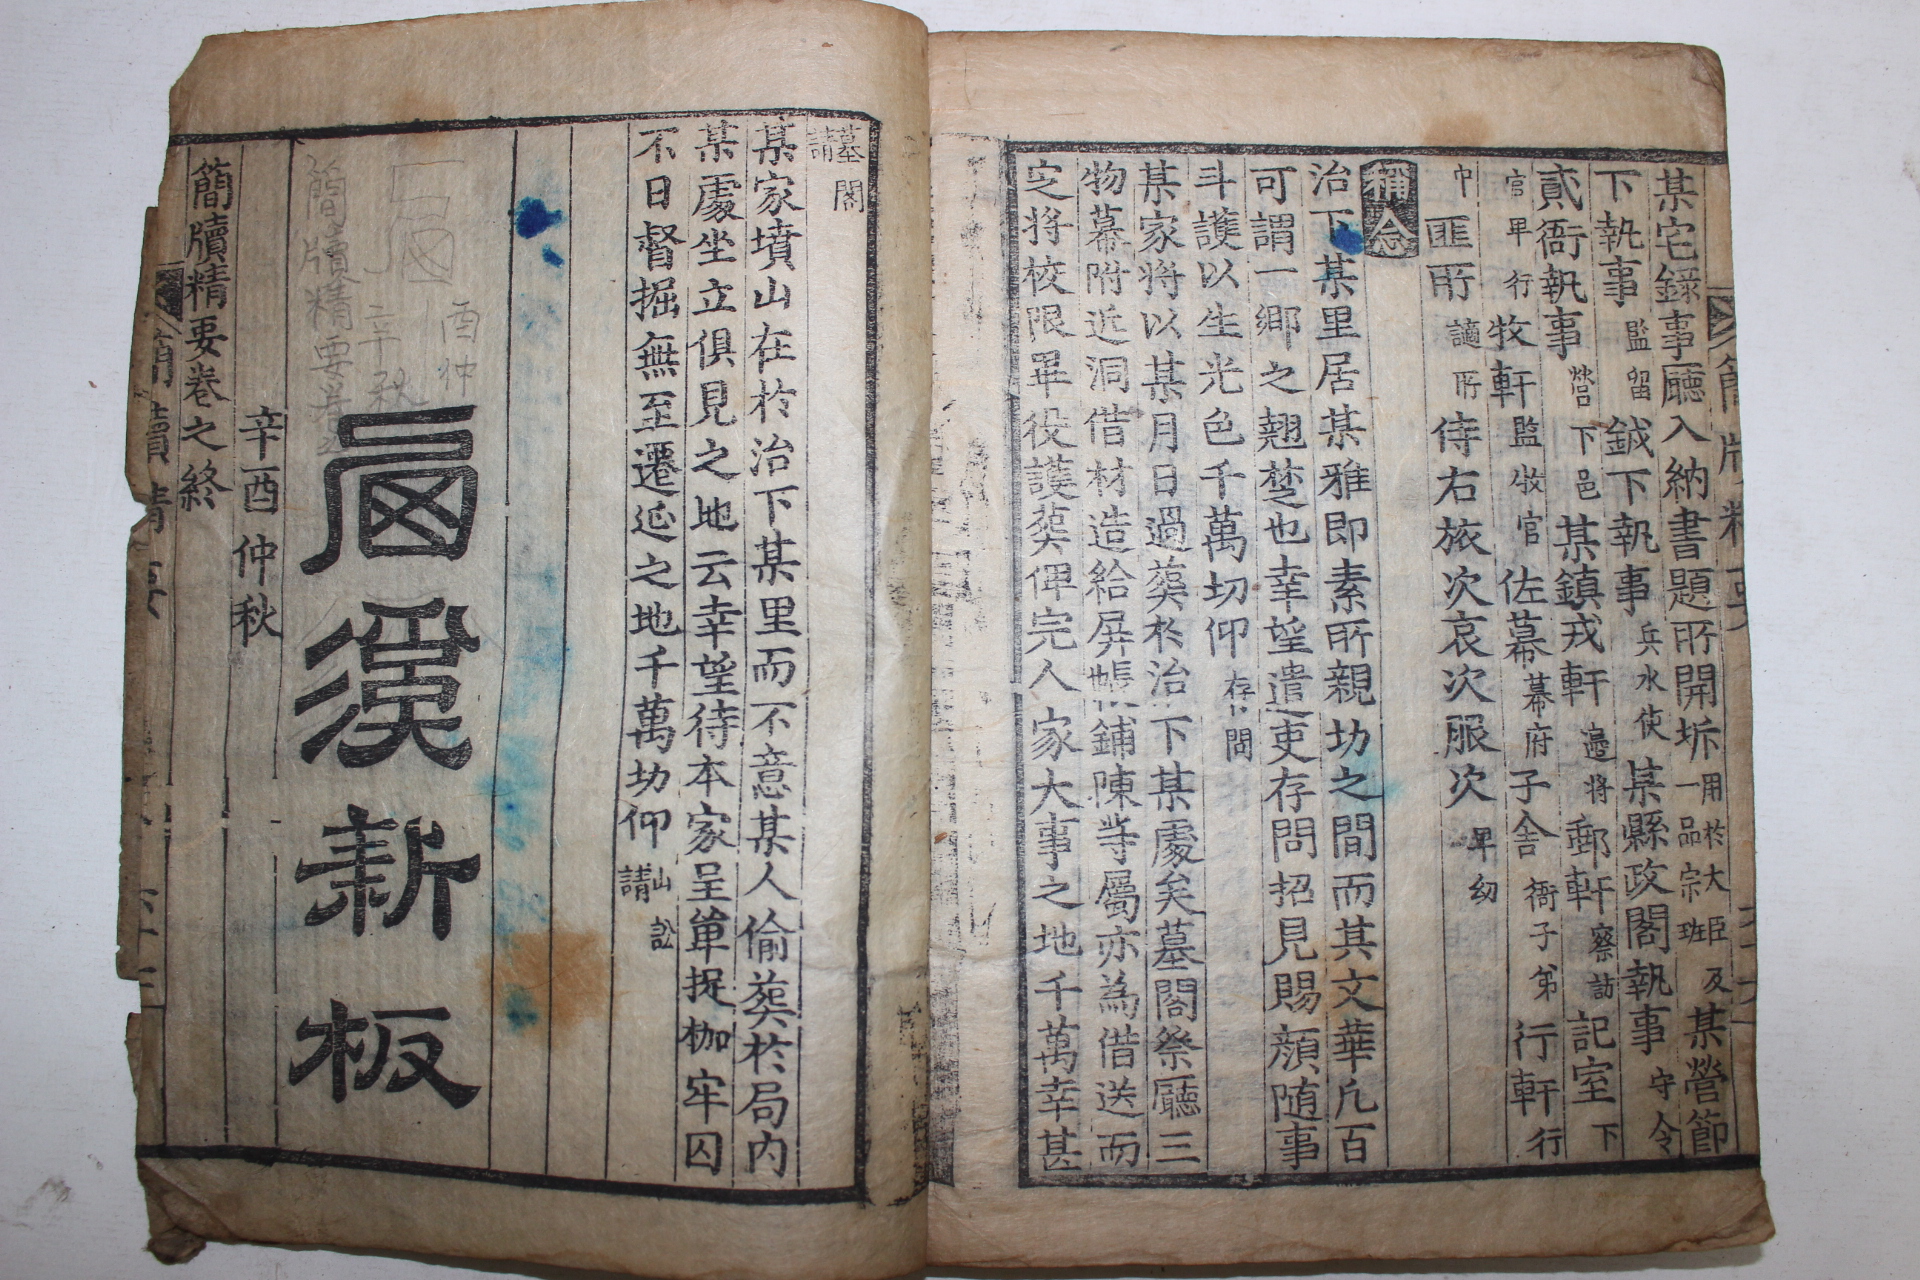 某宅錄事廳入納書題所開坼 用於大臣及一品宗班 某營節
下執事 監留 鉞下執事 兵水使 某縣政閣執事 守令
貳衙執事 營下邑 某鎭戎軒 邊將 郵軒 察訪 記室 下
官 行 牧軒 監牧官 佐幕 幕府 子舍 衙子弟 行軒 行
中 匪所 謫所 侍右旅次哀次服次 卑幼
稱念
治下某里居某雅卽素所親切之間而其文華凡百
可謂一鄕之翹楚也幸望遣吏存問招見賜顔隨事
斗護以生光色千萬切仰 存問
某家將以某月日過葬於治下某處矣墓閣祭廳三
物幕附近洞借材造給屛帳鋪陳等屬亦為借送而
定將校限畢役護葬俾完人家大事之地千萬幸甚
墓閣請
某家墳山在於治下某里而不意某人偷葬於局內
某處坐立俱見之地云幸望待本家呈單捉枷牢囚
不日督掘無至遷延之地千萬切仰 山訟請
新板
辛酉仲秋
簡牘精要卷之終
簡牘精要